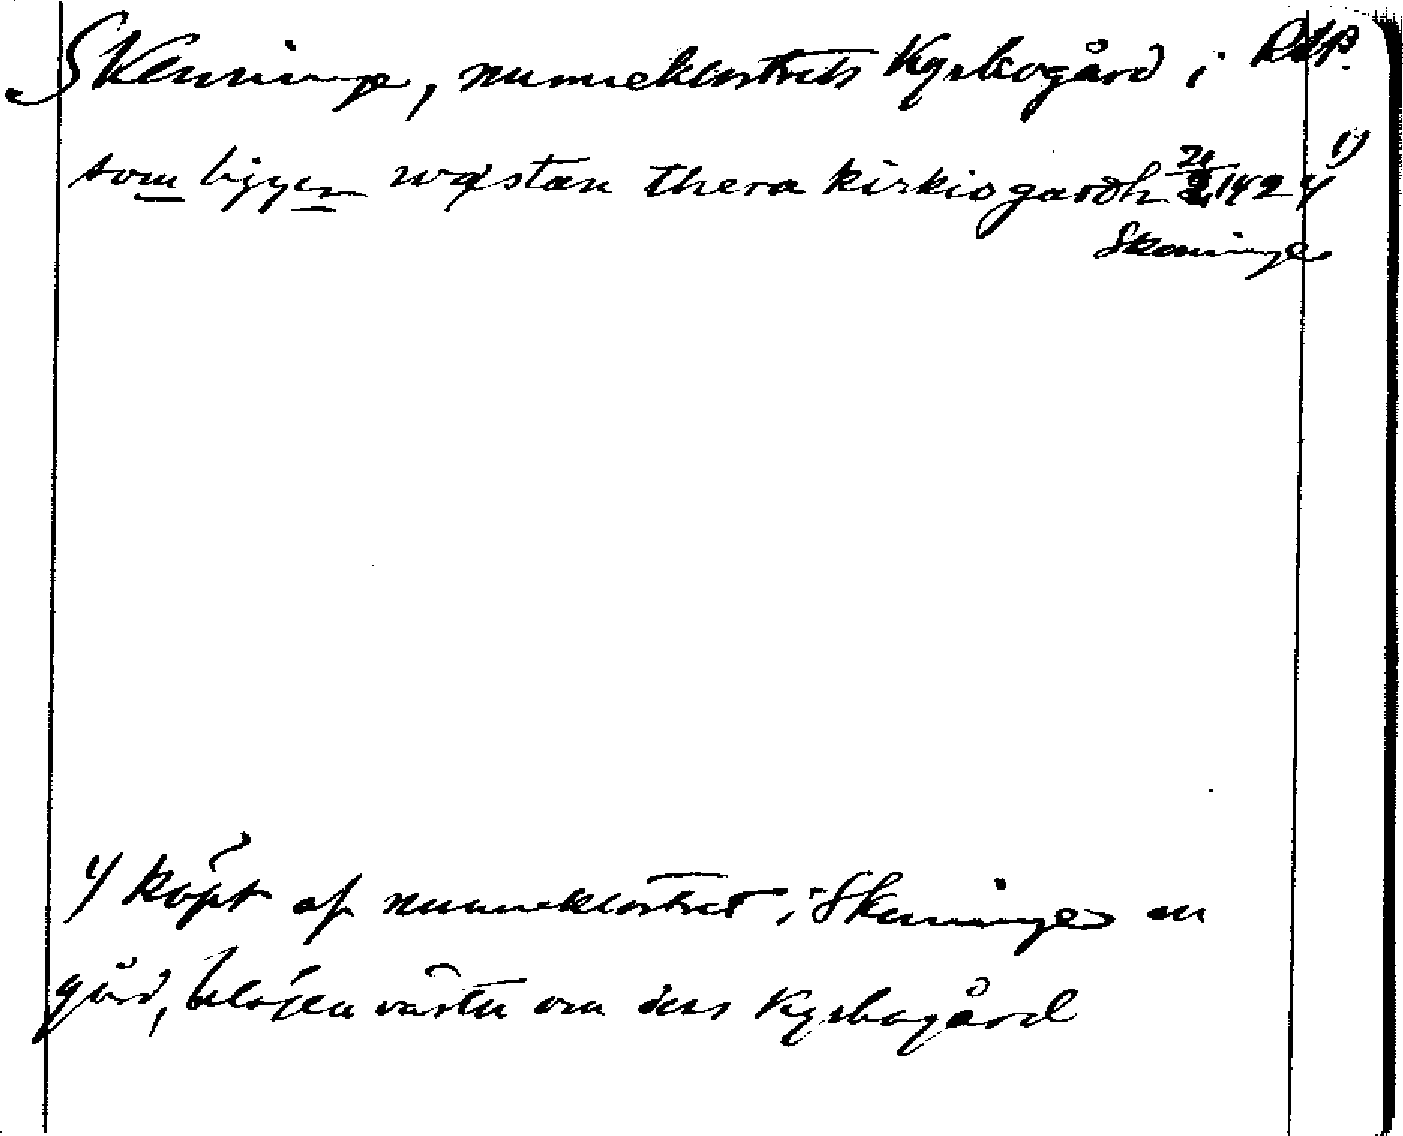 Skeninge, nunneklostrets Kyrkogård i RAP.
som liggen wæstan thera kirkiogardh 21/2 1424 1)
Skeninge
1) köpt af nunneklostret i Skeninge en
gård, belägen väster om dess Kyrkogård